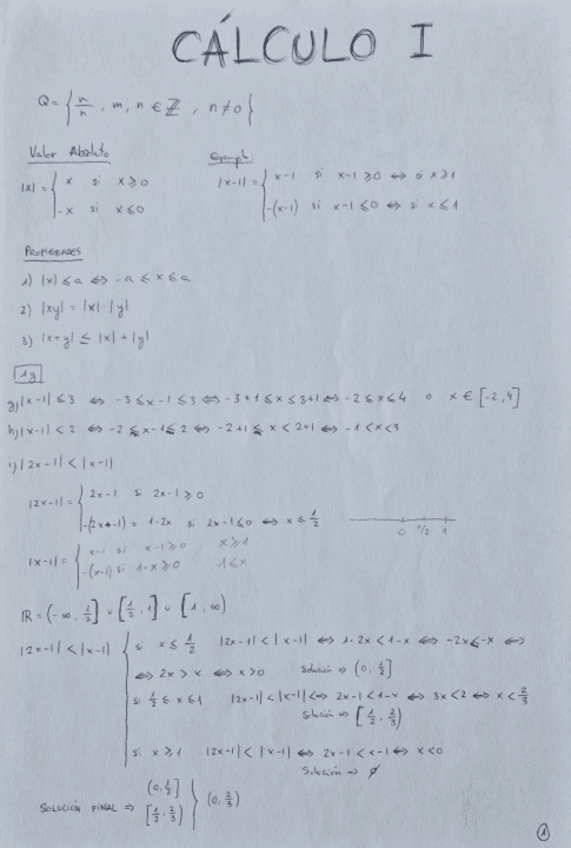 CÁLCULO I
Q = { m/n , m, n ∈ ℤ , n ≠ 0 }
Valor Absoluto
|x| = { x si x ≥ 0
-x si x ≤ 0
|x-1| = { x-1 si x-1 ≥ 0 ⇔ si x ≥ 1
-(x-1) si x-1 ≤ 0 ⇔ si x ≤ 1
PROPIEDADES
1) |x| ≤ a ⇔ -a ≤ x ≤ a
2) |xy| = |x|·|y|
3) |x+y| ≤ |x| + |y|
g) |x-1| ≤ 3 ⇔ -3 ≤ x-1 ≤ 3 ⇔ -3+1 ≤ x ≤ 3+1 ⇔ -2 ≤ x ≤ 4 o x ∈ [-2,4]
h) |x-1| < 2 ⇔ -2 ≤ x-1 ≤ 2 ⇔ -2+1 ≤ x < 2+1 ⇔ -1 < x < 3
i) |2x-1| < |x-1|
|2x-1| = { 2x-1 si 2x-1 ≥ 0
= 1-2x si 2x-1 ≤ 0 ⇔ x ≤ 1/2
0 1/2 1
|x-1| = { x-1 si x-1 ≥ 0 x ≥ 1
-(x-1) si 1-x ≥ 0 1 ≤ x
ℝ = (-∞, 1/2] ∪ [1/2, 1] ∪ [1, ∞)
|2x-1| < |x-1| { si x ≤ 1/2 |2x-1| < |x-1| ⇔ 1-2x < 1-x ⇔ -2x ≤ -x ⇔
⇔ 2x > x ⇔ x > 0 Solución ⇒ (0, 1/2]
si 1/2 ≤ x ≤ 1 |2x-1| < |x-1| ⇔ 2x-1 < 1-x ⇔ 3x < 2 ⇔ x < 2/3
Solución ⇒ [1/2, 2/3)
si x ≥ 1 |2x-1| < |x-1| ⇔ 2x-1 < x-1 ⇔ x < 0
Solución ⇒ ∅
SOLUCIÓN FINAL ⇒ (0, 1/2] [1/2, 2/3) } (0, 2/3)
1